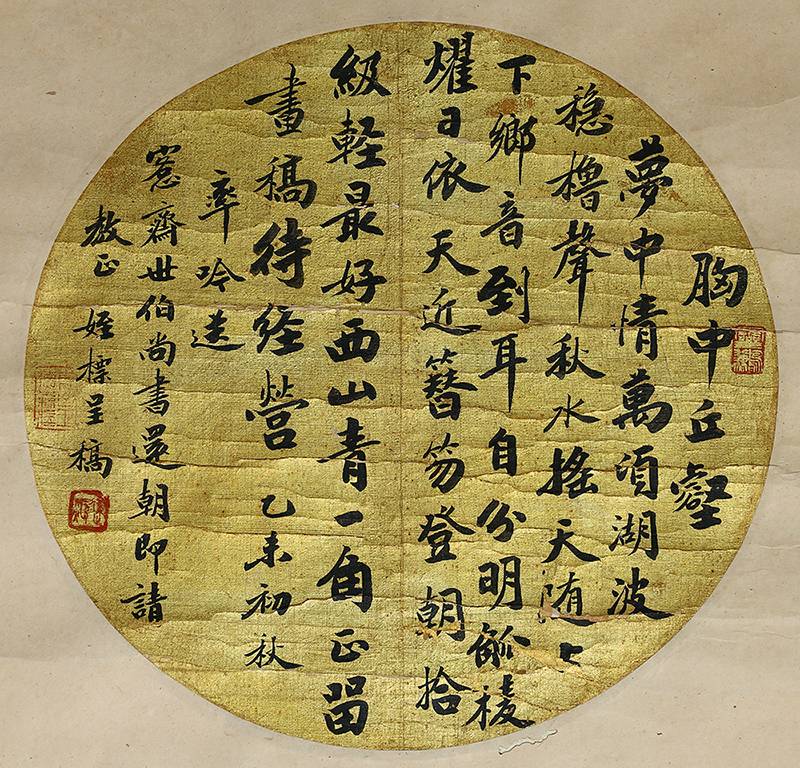 胸中丘壑
夢中情萬頃湖波
穏櫓聲秋水搖天随上
下鄉音到耳自分明觚稜
燿日依天近簪笏登朝拾
級軽最好西山青一角正留
畫稿待經營 乙未初秋
率吟送
愙齋世伯尚書還朝即請
教正 姪標呈稿